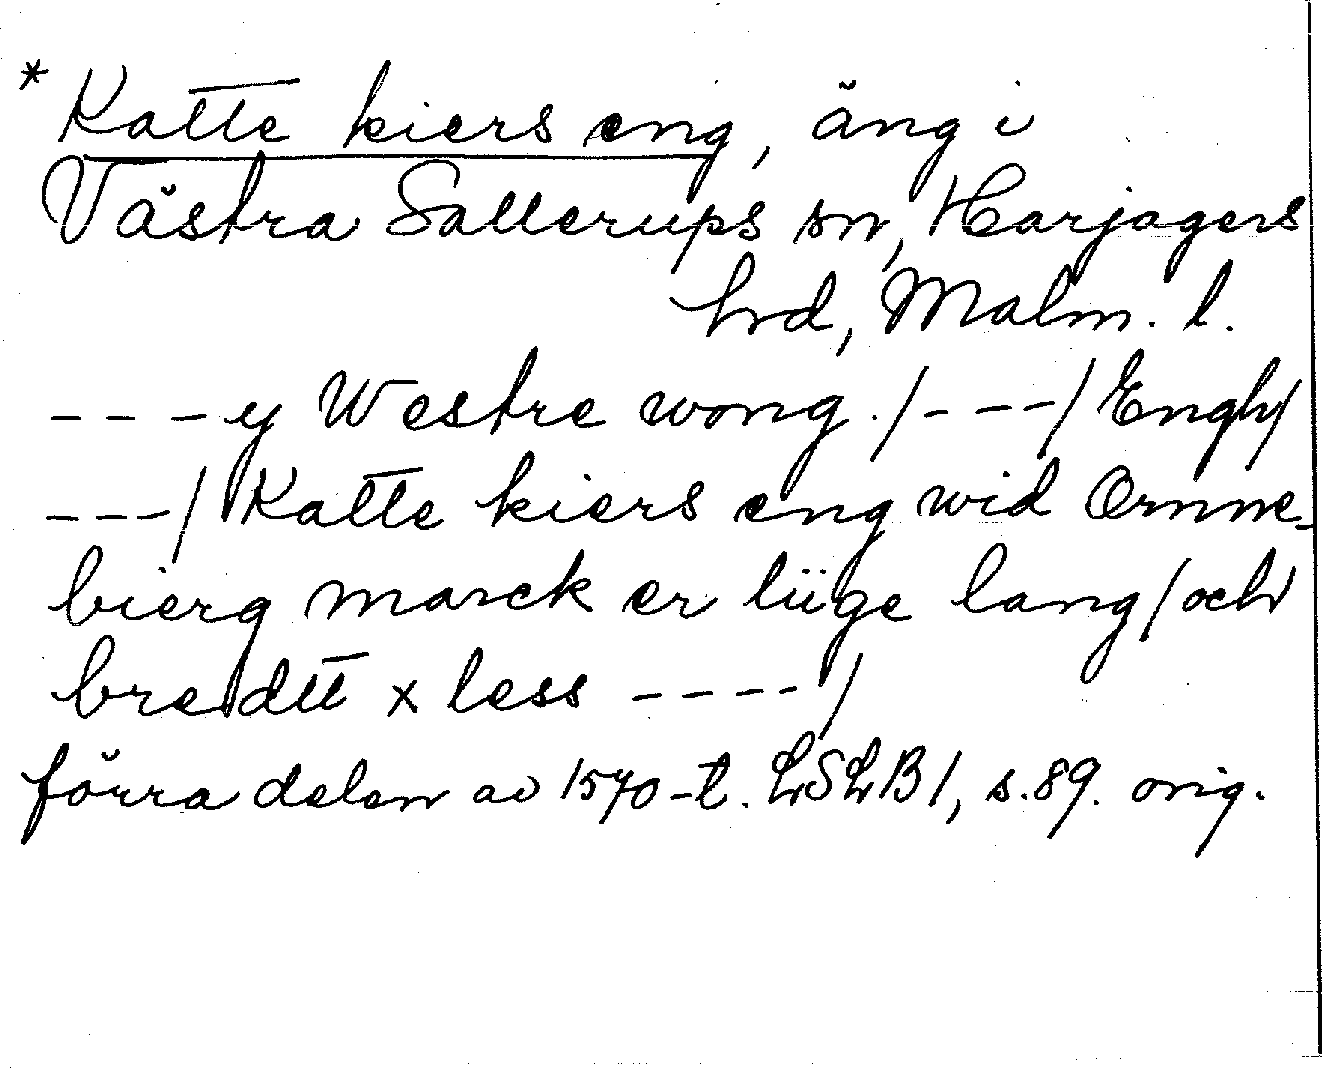 * Katte kiers eng, äng i
Västra Sallerups sn, Harjagers
hrd, Malm. l.
- - - y Westre wong. / - - - / Engh /
- - - / Katte kiers eng wid Ornne-
bierg marck er lüge lang / och
bredtt x less - - - - /
förra delen av 1570-t. LSLB 1, s. 89. orig.